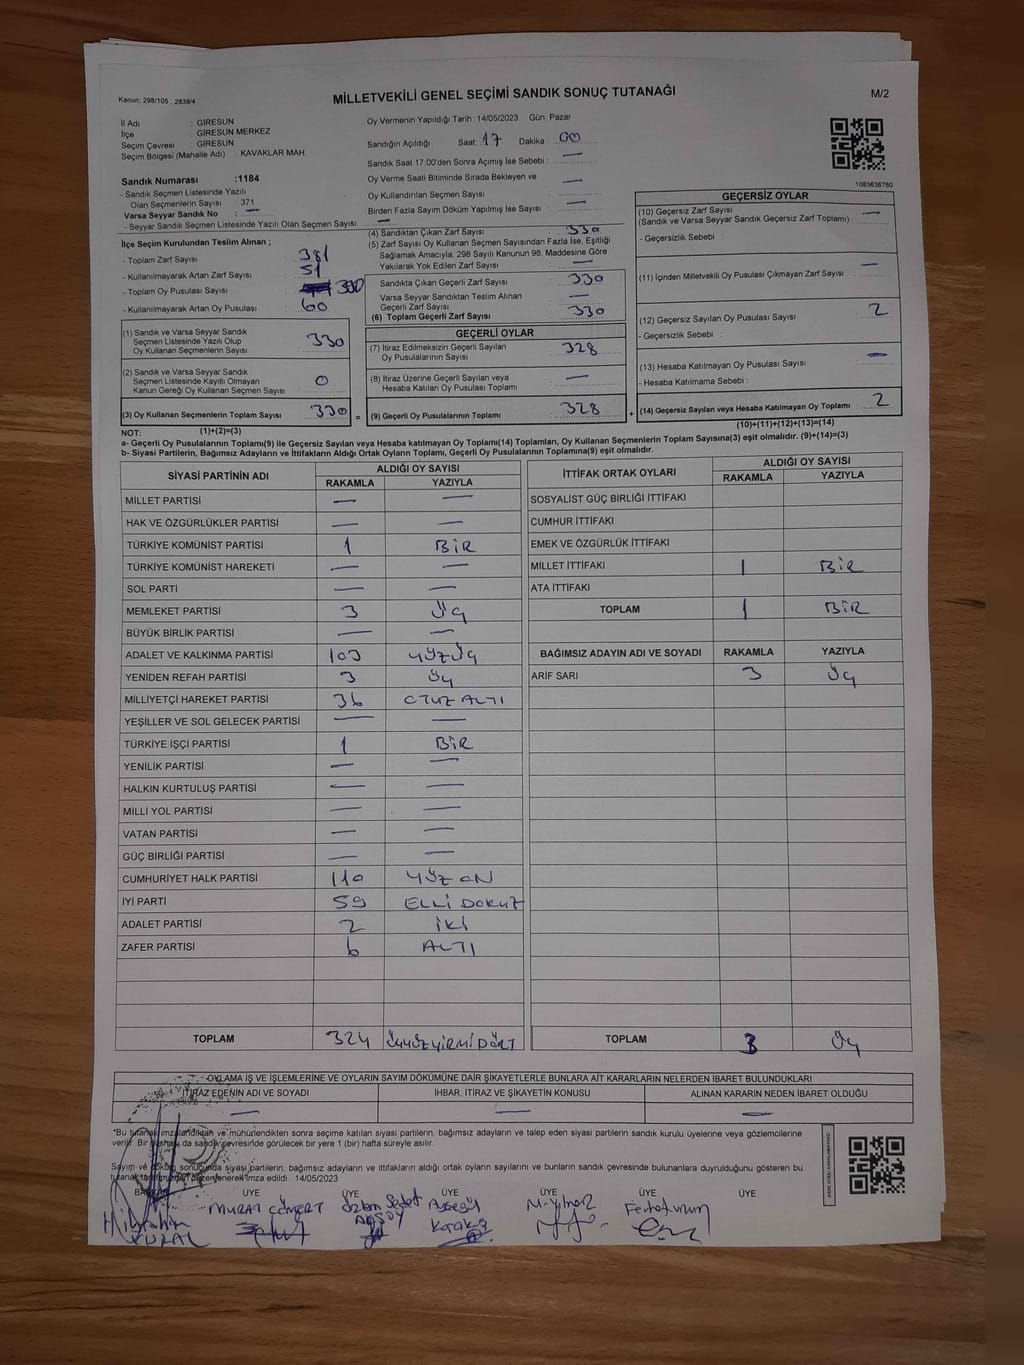 Kanun; 298/105 , 2839/4
MİLLETVEKİLİ GENEL SEÇİMİ SANDIK SONUÇ TUTANAĞI
M/2
İl Adı : GİRESUN
İlçe : GİRESUN MERKEZ
Seçim Çevresi : GİRESUN
Seçim Bölgesi (Mahalle Adı) : KAVAKLAR MAH
Sandık Numarası :1184
- Sandık Seçmen Listesinde Yazılı
Olan Seçmenlerin Sayısı : 371
Varsa Seyyar Sandık No : —
- Seyyar Sandık Seçmen Listesinde Yazılı Olan Seçmen Sayısı: —
Oy Vermenin Yapıldığı Tarih : 14/05/2023 Gün: Pazar
Sandığın Açıldığı Saat : 17 Dakika : 00
Sandık Saat 17:00'den Sonra Açımış İse Sebebi : —
Oy Verme Saati Bitiminde Sırada Bekleyen ve
Oy Kullandırılan Seçmen Sayısı : —
Birden Fazla Sayım Döküm Yapılmış İse Sayısı : —
1083636760
İlçe Seçim Kurulundan Teslim Alınan ;
- Toplam Zarf Sayısı : 381
- Kullanılmayarak Artan Zarf Sayısı : 51
- Toplam Oy Pusulası Sayısı : 390
- Kullanılmayarak Artan Oy Pusulası : 60
(1) Sandık ve Varsa Seyyar Sandık
Seçmen Listesinde Yazılı Olup
Oy Kullanan Seçmenlerin Sayısı : 330
(2) Sandık ve Varsa Seyyar Sandık
Seçmen Listesinde Kayıtlı Olmayan
Kanun Gereği Oy Kullanan Seçmen Sayısı : 0
(3) Oy Kullanan Seçmenlerin Toplam Sayısı : 330
(1)+(2)=(3)
(4) Sandıktan Çıkan Zarf Sayısı : 330
(5) Zarf Sayısı Oy Kullanan Seçmen Sayısından Fazla İse, Eşitliği
Sağlamak Amacıyla; 298 Sayılı Kanunun 98. Maddesine Göre
Yakılarak Yok Edilen Zarf Sayısı : —
Sandıkta Çıkan Geçerli Zarf Sayısı : 330
Varsa Seyyar Sandıktan Teslim Alınan
Geçerli Zarf Sayısı : —
(6) Toplam Geçerli Zarf Sayısı : 330
GEÇERLİ OYLAR
(7) İtiraz Edilmeksizin Geçerli Sayılan
Oy Pusulalarının Sayısı : 328
(8) İtiraz Üzerine Geçerli Sayılan veya
Hesaba Katılan Oy Pusulası Toplamı : —
= (9) Geçerli Oy Pusulalarının Toplamı : 328
GEÇERSİZ OYLAR
(10) Geçersiz Zarf Sayısı
(Sandık ve Varsa Seyyar Sandık Geçersiz Zarf Toplamı) : —
- Geçersizlik Sebebi :
(11) İçinden Milletvekili Oy Pusulası Çıkmayan Zarf Sayısı : —
(12) Geçersiz Sayılan Oy Pusulası Sayısı : 2
- Geçersizlik Sebebi :
(13) Hesaba Katılmayan Oy Pusulası Sayısı : —
- Hesaba Katılmama Sebebi :
+ (14) Geçersiz Sayılan veya Hesaba Katılmayan Oy Toplamı : 2
(10)+(11)+(12)+(13)=(14)
NOT:
a- Geçerli Oy Pusulalarının Toplamı(9) ile Geçersiz Sayılan veya Hesaba katılmayan Oy Toplamı(14) Toplamları, Oy Kullanan Seçmenlerin Toplam Sayısına(3) eşit olmalıdır. (9)+(14)=(3)
b- Siyasi Partilerin, Bağımsız Adayların ve İttifakların Aldığı Ortak Oyların Toplamı, Geçerli Oy Pusulalarının Toplamına(9) eşit olmalıdır.
SİYASİ PARTİNİN ADI ALDIĞI OY SAYISI
RAKAMLA YAZIYLA
MİLLET PARTİSİ — —
HAK VE ÖZGÜRLÜKLER PARTİSİ — —
TÜRKİYE KOMÜNİST PARTİSİ 1 BİR
TÜRKİYE KOMÜNİST HAREKETİ — —
SOL PARTİ — —
MEMLEKET PARTİSİ 3 ÜÇ
BÜYÜK BİRLİK PARTİSİ — —
ADALET VE KALKINMA PARTİSİ 103 YÜZÜÇ
YENİDEN REFAH PARTİSİ 3 ÜÇ
MİLLİYETÇİ HAREKET PARTİSİ 36 OTUZ ALTI
YEŞİLLER VE SOL GELECEK PARTİSİ — —
TÜRKİYE İŞÇİ PARTİSİ 1 BİR
YENİLİK PARTİSİ — —
HALKIN KURTULUŞ PARTİSİ — —
MİLLİ YOL PARTİSİ — —
VATAN PARTİSİ — —
GÜÇ BİRLİĞİ PARTİSİ — —
CUMHURİYET HALK PARTİSİ 110 YÜZ ON
İYİ PARTİ 59 ELLİ DOKUZ
ADALET PARTİSİ 2 İKİ
ZAFER PARTİSİ 6 ALTI
TOPLAM 324 ÜÇYÜZYİRMİ DÖRT
İTTİFAK ORTAK OYLARI ALDIĞI OY SAYISI
RAKAMLA YAZIYLA
SOSYALİST GÜÇ BİRLİĞİ İTTİFAKI
CUMHUR İTTİFAKI
EMEK VE ÖZGÜRLÜK İTTİFAKI
MİLLET İTTİFAKI 1 BİR
ATA İTTİFAKI
TOPLAM 1 BİR
BAĞIMSIZ ADAYIN ADI VE SOYADI RAKAMLA YAZIYLA
ARİF SARI 3 ÜÇ
TOPLAM 3 ÜÇ
OYLAMA İŞ VE İŞLEMLERİNE VE OYLARIN SAYIM DÖKÜMÜNE DAİR ŞİKAYETLERLE BUNLARA AİT KARARLARIN NELERDEN İBARET BULUNDUKLARI
İTİRAZ EDENİN ADI VE SOYADI İHBAR, İTİRAZ VE ŞİKAYETİN KONUSU ALINAN KARARIN NEDEN İBARET OLDUĞU
— — —
*Bu tutanak imzalandıktan ve mühürlendikten sonra seçime katılan siyasi partilerin, bağımsız adayların ve talep eden siyasi partilerin sandık kurulu üyelerine veya gözlemcilerine
verilir. Bir da sandık çevresinde görülecek bir yere 1 (bir) hafta süreyle asılır.
Sayım ve döküm sonucunda siyasi partilerin, bağımsız adayların ve ittifakların aldığı ortak oyların sayılarını ve bunların sandık çevresinde bulunanlara duyrulduğunu gösteren bu
tutanak düzenlenerek imza edildi. 14/05/2023
BAŞKAN ÜYE ÜYE ÜYE ÜYE ÜYE ÜYE
H.İbrahim KURAL
MURAT CÖMERT
Ayşegül Karakış
M. Yılmaz